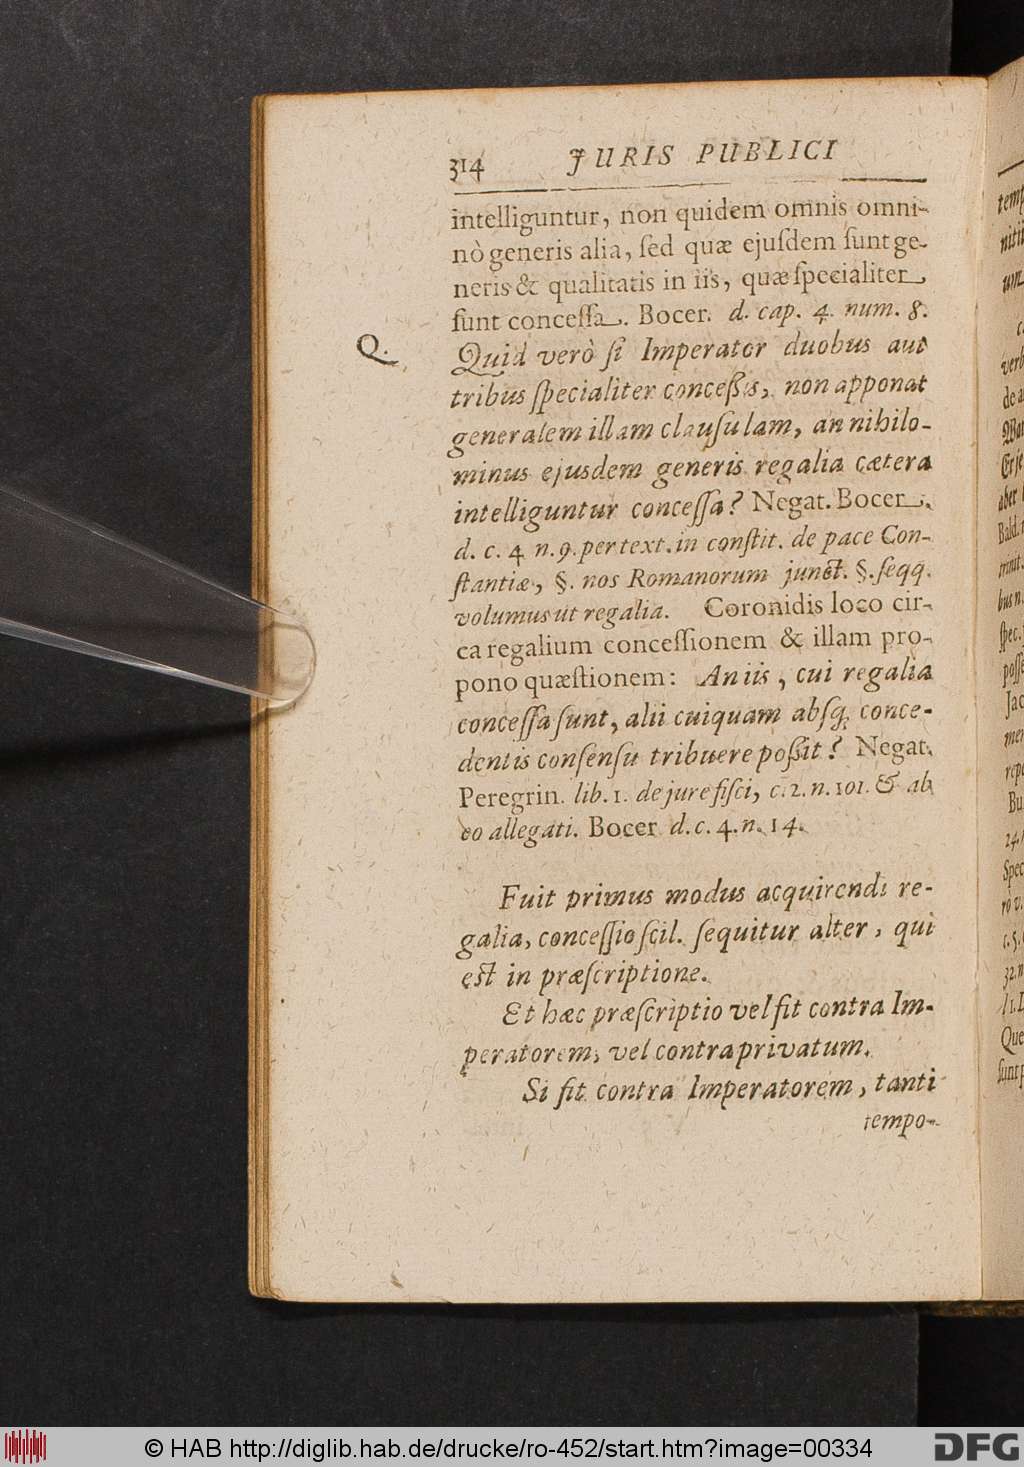 314 JURIS PUBLICI
intelliguntur, non quidem omnis omni-
nò generis alia, ſed quæ ejuſdem ſunt ge-
neris & qualitatis in iis, quæ ſpecialiter
ſunt conceſſa. Bocer. d. cap. 4. num. 8.
Q.
Quid verò ſi Imperator duobus aut
tribus ſpecialiter conceßis, non apponat
generalem illam clauſulam, an nihilo-
minus ejusdem generis regalia cætera
intelliguntur conceſſa? Negat. Bocer.
d. c. 4 n. 9. per text. in conſtit. de pace Con-
ſtantiæ, §. nos Romanorum junct. §. ſeqq.
volumus ut regalia. Coronidis loco cir-
ca regalium conceſſionem & illam pro-
pono quæſtionem: An iis, cui regalia
conceſſa ſunt, alii cuiquam abſq; conce-
dentis conſenſu tribuere poßit? Negat.
Peregrin. lib. 1. de jure fiſci, c. 2. n. 101. & ab
eo allegati. Bocer d. c. 4. n. 14.
Fuit primus modus acquirendi re-
galia, conceſſio ſcil. ſequitur alter, qui
eſt in præſcriptione.
Et hæc præſcriptio vel fit contra Im-
peratorem, vel contra privatum.
Si fit contra Imperatorem, tanti
tempo-
temp
nitib
um
verb
de a
Er je
aber
Bald.
bus n.
ſpec.
poſſe
Jac
mer
repe
Bu
24.
Spec
rò v.
c. 5.
32. n
Que
ſunt p
© HAB http://diglib.hab.de/drucke/ro-452/start.htm?image=00334
DFG